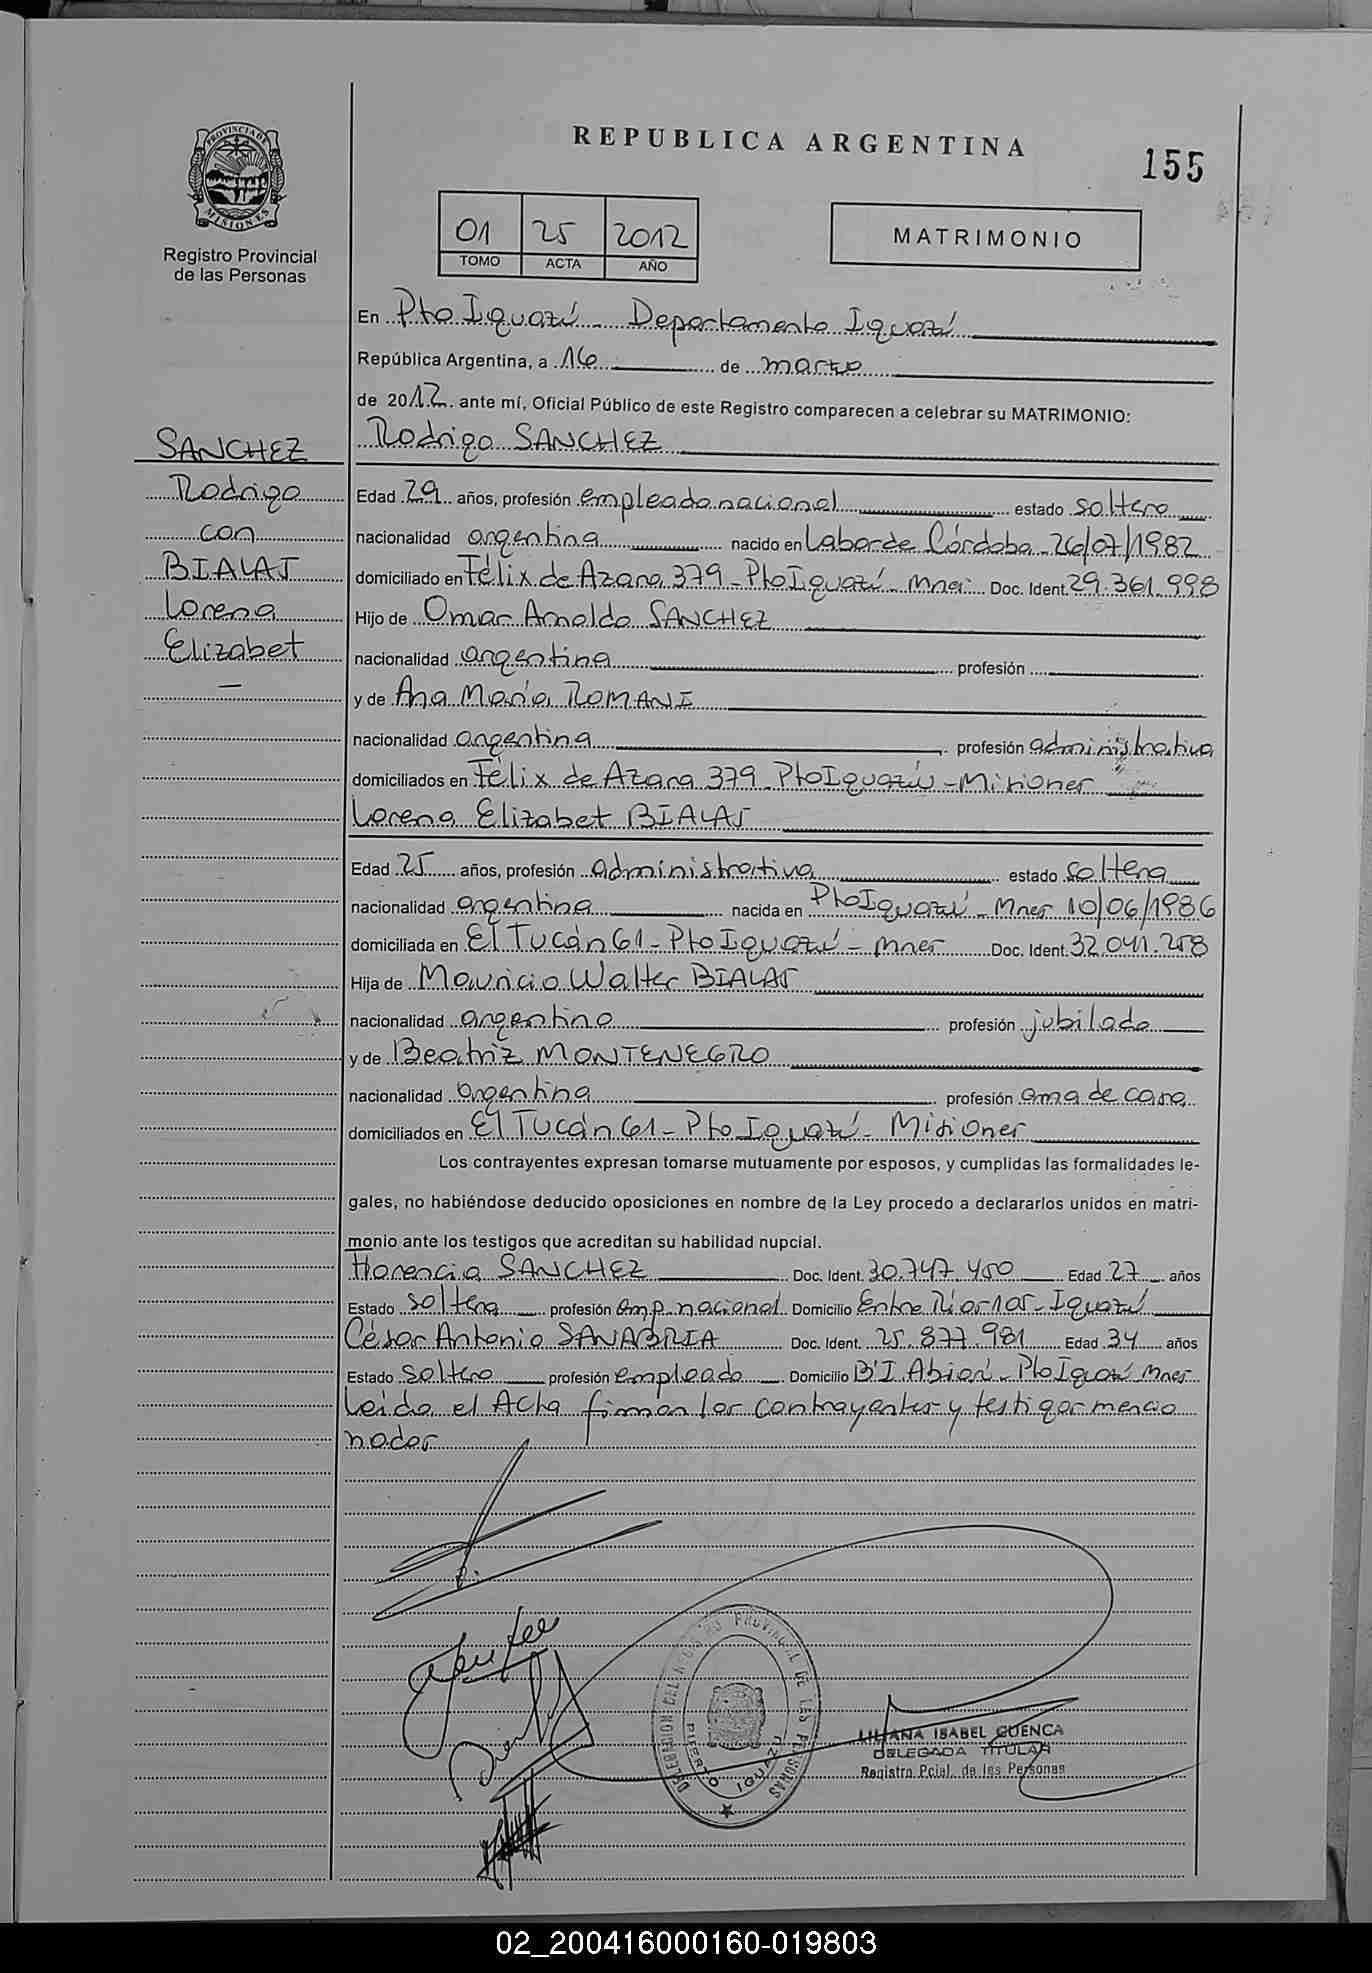 REPUBLICA ARGENTINA
155
PROVINCIA DE MISIONES
Registro Provincial
de las Personas
01 25 2012
TOMO ACTA AÑO
MATRIMONIO
En Pto Iguazú - Departamento Iguazú
República Argentina, a 16 de marzo
de 2012 ante mí, Oficial Público de este Registro comparecen a celebrar su MATRIMONIO:
SANCHEZ
Rodrigo
con
BIALAS
Lorena
Elizabet
Rodrigo SANCHEZ
Edad 29 años, profesión empleado nacional estado soltero
nacionalidad argentina nacido en Laborde Córdoba - 26/07/1982
domiciliado en Félix de Azara 379 - Pto Iguazú - Mnes Doc. Ident. 29.361.998
Hijo de Omar Arnoldo SANCHEZ
nacionalidad argentina profesión
y de Ana María ROMANI
nacionalidad argentina profesión administrativa
domiciliados en Félix de Azara 379 - Pto Iguazú - Misiones
Lorena Elizabet BIALAS
Edad 25 años, profesión administrativa estado soltera
nacionalidad argentina nacida en Pto Iguazú - Mnes 10/06/1986
domiciliada en El Tucán 61 - Pto Iguazú - Mnes Doc. Ident. 32.041.258
Hija de Mauricio Walter BIALAS
nacionalidad argentino profesión jubilado
y de Beatriz MONTENEGRO
nacionalidad argentina profesión ama de casa
domiciliados en El Tucán 61 - Pto Iguazú - Misiones
Los contrayentes expresan tomarse mutuamente por esposos, y cumplidas las formalidades le-
gales, no habiéndose deducido oposiciones en nombre de la Ley procedo a declararlos unidos en matri-
monio ante los testigos que acreditan su habilidad nupcial.
Florencia SANCHEZ Doc. Ident. 30.747.450 Edad 27 años
Estado soltera profesión emp. nacional Domicilio Entre Ríos 105 - Iguazú
César Antonio SANABRIA Doc. Ident. 25.877.981 Edad 34 años
Estado soltero profesión empleado Domicilio Bº I. Pto Iguazú Mnes
Leída el Acta firman los contrayentes y testigos mencio
nados
DELEGACION DEL REGISTRO PROVINCIAL DE LAS PERSONAS
PUERTO IGUAZU
LILIANA ISABEL CUENCA
DELEGADA TITULAR
Registro Pcial. de las Personas
02_200416000160-019803